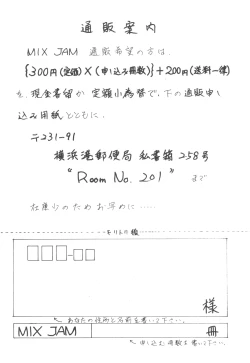 通販案内
MIX JAM 通販希望の方は、
{300円(定価)×(申し込み冊数)}+200円(送料一律)
を、現金書留か定額小為替で、下の通販申し
込み用紙とともに、
〒231-91
横浜港郵便局 私書箱258号
"Room No. 201" まで
在庫少のためお早めに……
キリトリ線
様
あなたの住所と名前を書いて下さい。
MIX JAM 冊
申し込む冊数を書いて下さい。